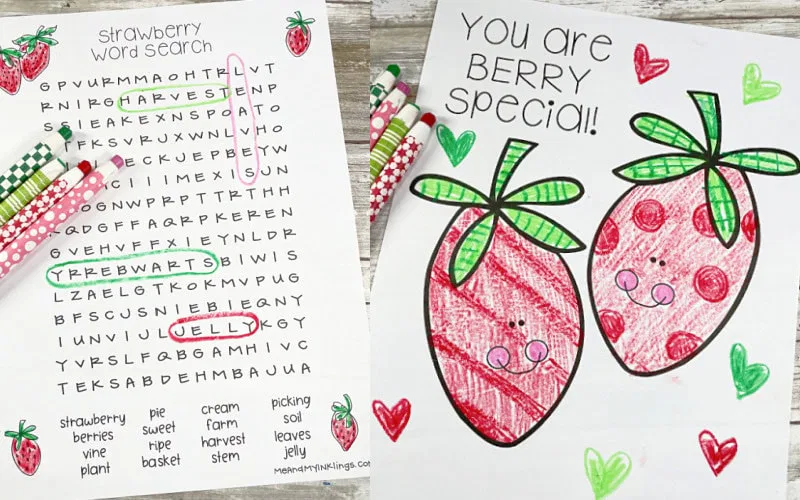 strawberry
word search
G P V U R M M A O H T R L V T
R N I R G H A R V E S T E N P
S S I E A K E X N S P O A T O
T F K S V R J X W N L V H O
E C K J E P B E Y W
C I I I M E X I S J N
O G N W P R P T T R T H H
Q D G F F A Q R P K E R E N
G V E H V F F X I E Y N L D R
Y R R E B W A R T S B I W I S
L Z A E L G T K O K M V P U G
B F S C J S N I E B I E Q N Y
I U N V I J L J E L L Y K G Y
Y V R S L F Q B G A M H I V C
T E K S A B D E H M B A J U A
strawberry pie cream picking
berries sweet farm soil
vine ripe harvest leaves
plant basket stem jelly
MeAndMyInklings.co
You are
BERRY
special!